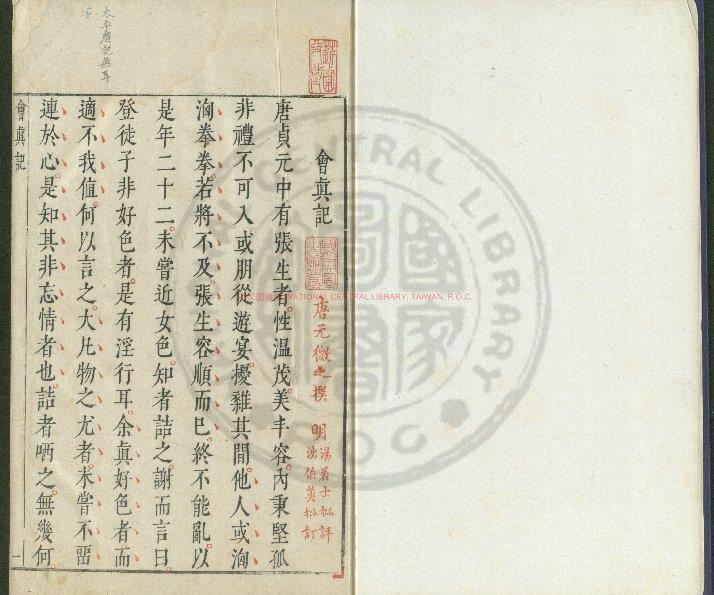 會真記
唐元微之撰 明
湯若士批評
沈伯英批訂
唐貞元中有張生者。性溫茂。美丰容。內秉堅孤
非禮不可入。或朋從遊宴。擾雜其間。他人或洶
洶拳拳。若將不及。張生容順而已。終不能亂。以
是年二十二。未嘗近女色。知者詰之。謝而言曰。
登徒子非好色者。是有淫行耳。余真好色者。而
適不我值。何以言之。大凡物之尤者。未嘗不畱
連於心。是知其非忘情者也。詰者哂之。無幾何
會真記
一
太平廣記無耳
字
NATIONAL CENTRAL LIBRARY, TAIWAN, R.O.C.
CENTRAL LIBRARY
ROC